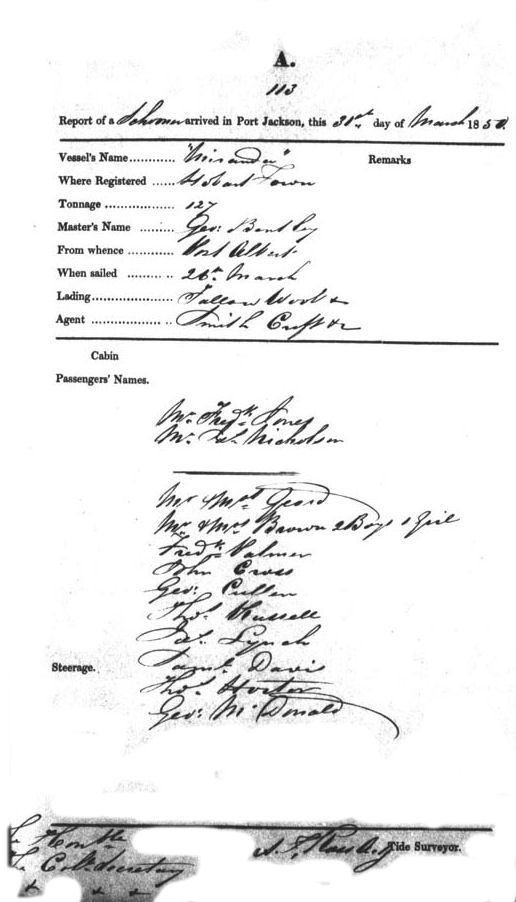 A.
113
Report of a Schooner arrived in Port Jackson, this 31st day of March 1850.
Vessel's Name "Miranda" Remarks
Where Registered Hobart Town
Tonnage 127
Master's Name Geo: Bentley
From whence Port Albert
When sailed 26th March
Lading Tallow Wool &
Agent Smith Croft & Co
Cabin
Passengers' Names.
Mr Fredk Jones
Mr Jas Nicholson
Mr & Mrs
Mr & Mrs Brown 2 Boys 1 Girl
Fredk Palmer
John Cross
Geo: Cullen
Thos Russell
Jas Lynch
Steerage. Saml Davis
Thos
Geo: McDonald
Tide Surveyor.
Honble
Col Secretary
& & &